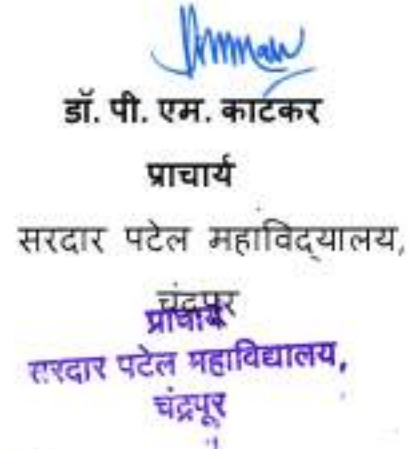 डॉ. पी. एम. काटकर
प्राचार्य
सरदार पटेल महाविद्यालय,
चंद्रपुर
प्राचार्य
सरदार पटेल महाविद्यालय,
चंद्रपूर